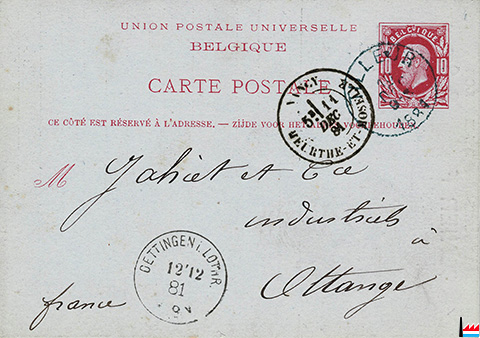 UNION POSTALE UNIVERSELLE
BELGIQUE
CARTE POSTALE
BELGIQUE
10 10
CE CÔTÉ EST RÉSERVÉ À L'ADRESSE. — ZIJDE VOOR HET ADRES VOORBEHOUDEN.
NANCY
11
DEC
81
MEURTHE-ET-MOSELLE
M Jahiet et Cie
industriels
à
Ottange
france
OETTINGEN i. LOTHR
12 12
81